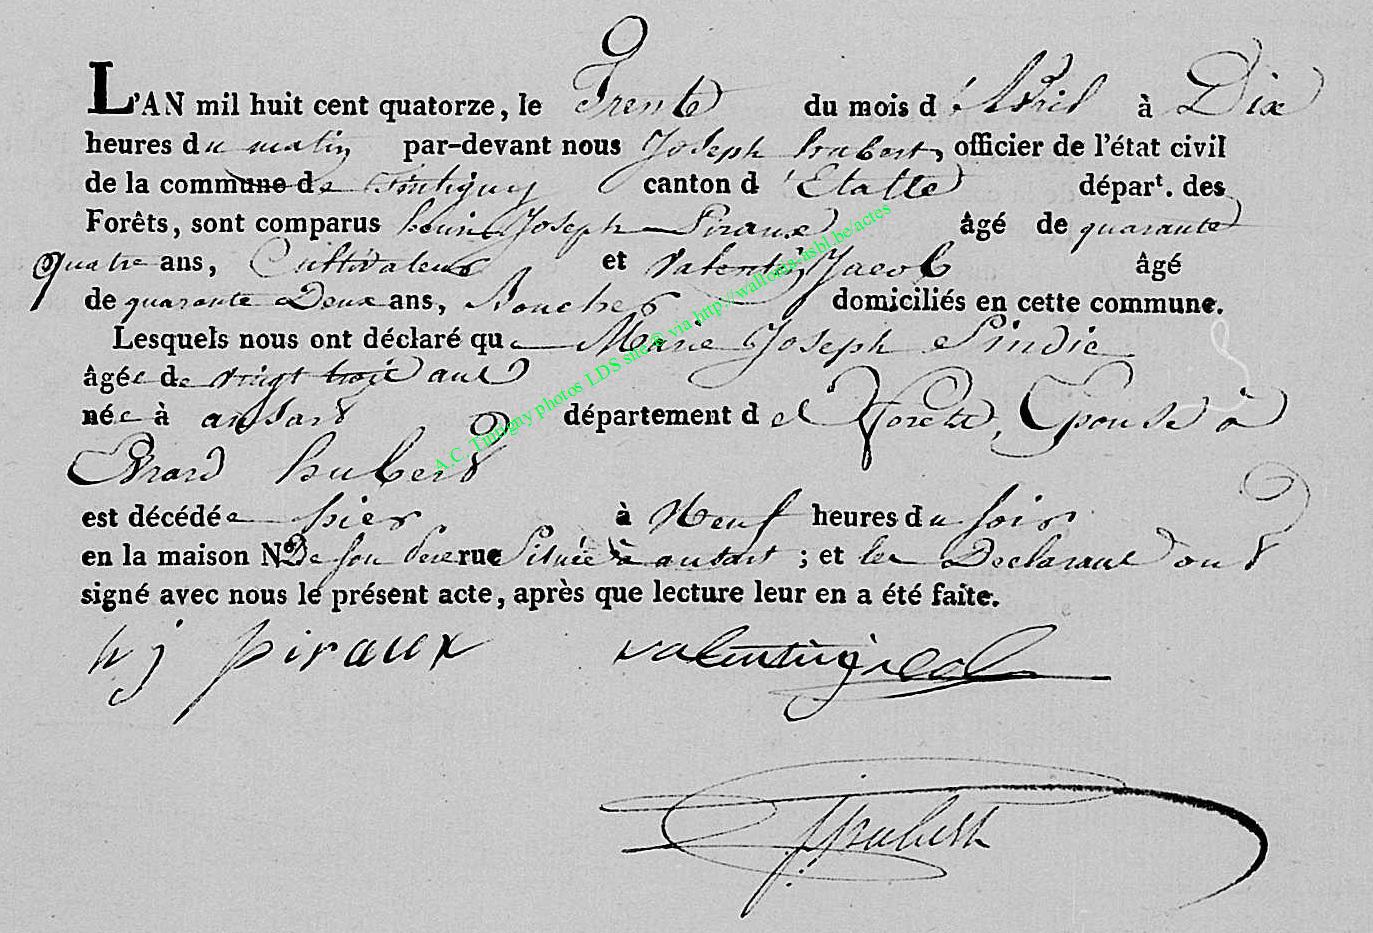 L'AN mil huit cent quatorze, le Trente du mois d'Avril à Dix
heures du matin par-devant nous Joseph hubert, officier de l'état civil
de la commune de Tintigny canton d'Etalle départ. des
Forêts, sont comparus henri Joseph Piraux âgé de quarante
quatre ans, Cultivateur et Valentin Jacob âgé
de quarante Deux ans, Boucher domiciliés en cette commune.
Lesquels nous ont déclaré que Marie Joseph Sindic
âgée de vingt trois ans
née à ansart département des forets, Epouse à
Erard hubert
est décédée hier à Neuf heures du soir
en la maison No. De son Pere rue Située à ansart ; et les Declarant ont
signé avec nous le présent acte, après que lecture leur en a été faite.
h j piraux valentin jacob
J hubert
A.C. Tintigny photos LDS site @ via http://wallonia-asbl.be/actes